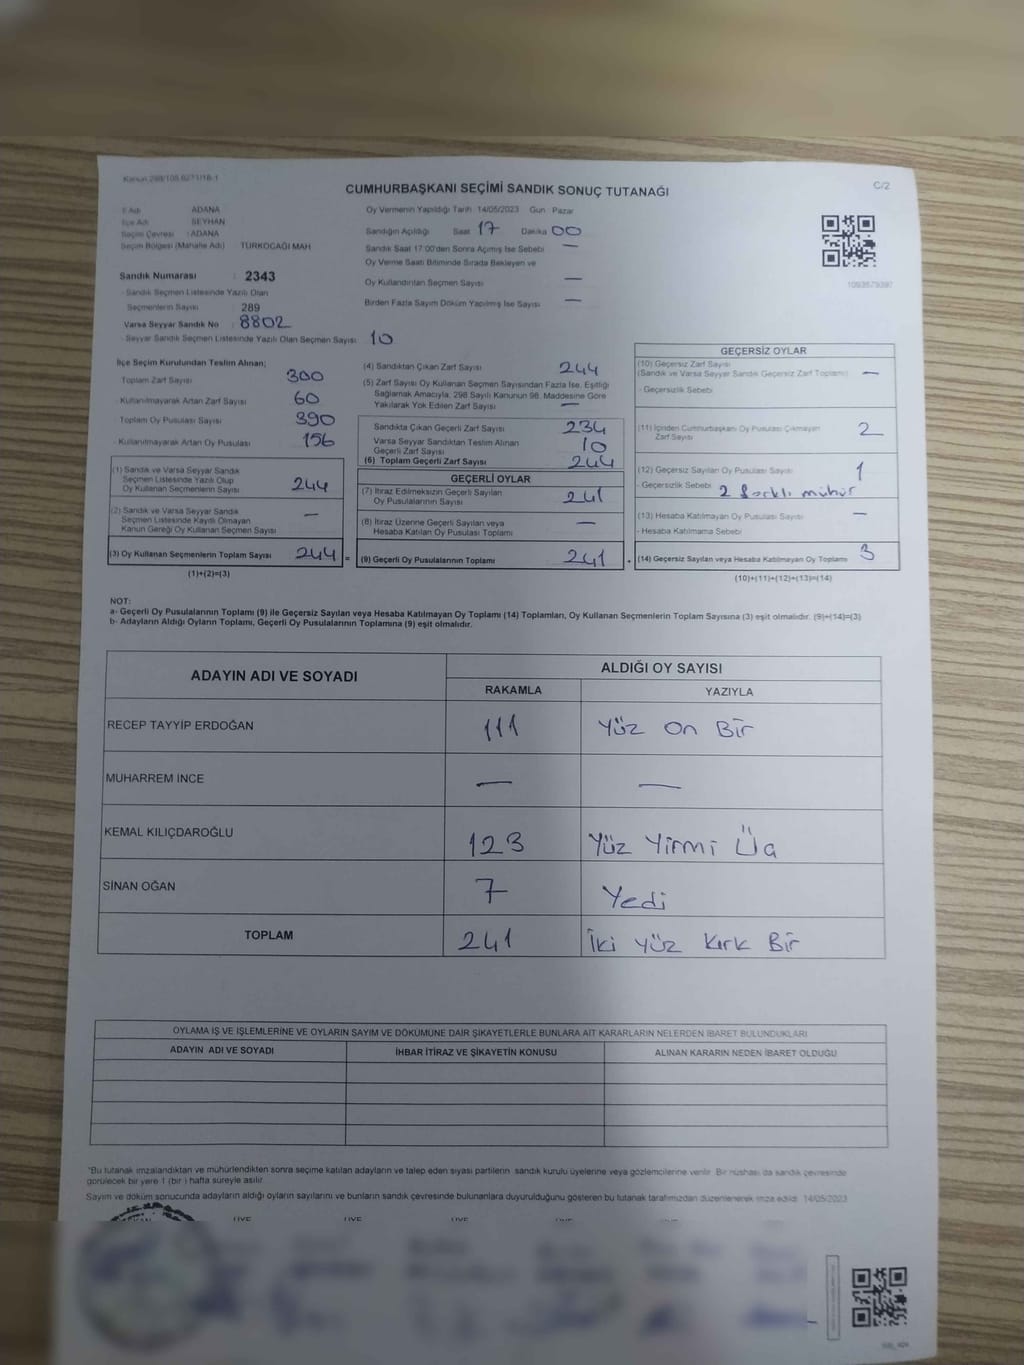 Kanun 298/105 6271/18-1
CUMHURBAŞKANI SEÇİMİ SANDIK SONUÇ TUTANAĞI
C/2
İl Adı ADANA
İlçe Adı SEYHAN
Seçim Çevresi : ADANA
Seçim Bölgesi (Mahalle Adı) TÜRKOCAĞI MAH
Oy Vermenin Yapıldığı Tarih 14/05/2023 Gün Pazar
Sandığın Açıldığı Saat 17 Dakika 00
Sandık Saat 17:00'den Sonra Açılmış İse Sebebi —
Oy Verme Saati Bitiminde Sırada Bekleyen ve
Oy Kullandırılan Seçmen Sayısı —
Birden Fazla Sayım Döküm Yapılmış İse Sayısı —
1093579397
Sandık Numarası : 2343
- Sandık Seçmen Listesinde Yazılı Olan
Seçmenlerin Sayısı : 289
Varsa Seyyar Sandık No : 8802
- Seyyar Sandık Seçmen Listesinde Yazılı Olan Seçmen Sayısı 10
İlçe Seçim Kurulundan Teslim Alınan;
Toplam Zarf Sayısı 300
- Kullanılmayarak Artan Zarf Sayısı 60
Toplam Oy Pusulası Sayısı 390
- Kullanılmayarak Artan Oy Pusulası 156
(1) Sandık ve Varsa Seyyar Sandık
Seçmen Listesinde Yazılı Olup
Oy Kullanan Seçmenlerin Sayısı 244
(2) Sandık ve Varsa Seyyar Sandık
Seçmen Listesinde Kayıtlı Olmayan
Kanun Gereği Oy Kullanan Seçmen Sayısı —
(3) Oy Kullanan Seçmenlerin Toplam Sayısı 244 =
(1)+(2)=(3)
(4) Sandıktan Çıkan Zarf Sayısı 244
(5) Zarf Sayısı Oy Kullanan Seçmen Sayısından Fazla İse, Eşitliği
Sağlamak Amacıyla, 298 Sayılı Kanunun 98. Maddesine Göre
Yakılarak Yok Edilen Zarf Sayısı —
Sandıkta Çıkan Geçerli Zarf Sayısı 234
Varsa Seyyar Sandıktan Teslim Alınan
Geçerli Zarf Sayısı 10
(6) Toplam Geçerli Zarf Sayısı 244
GEÇERLİ OYLAR
(7) İtiraz Edilmeksizin Geçerli Sayılan
Oy Pusulalarının Sayısı 241
(8) İtiraz Üzerine Geçerli Sayılan veya
Hesaba Katılan Oy Pusulası Toplamı —
(9) Geçerli Oy Pusulalarının Toplamı 241
GEÇERSİZ OYLAR
(10) Geçersiz Zarf Sayısı
(Sandık ve Varsa Seyyar Sandık Geçersiz Zarf Toplamı) —
- Geçersizlik Sebebi
(11) İçinden Cumhurbaşkanı Oy Pusulası Çıkmayan
Zarf Sayısı 2
(12) Geçersiz Sayılan Oy Pusulası Sayısı 1
- Geçersizlik Sebebi 2 farklı mühür
(13) Hesaba Katılmayan Oy Pusulası Sayısı —
- Hesaba Katılmama Sebebi
(14) Geçersiz Sayılan veya Hesaba Katılmayan Oy Toplamı 3
(10)+(11)+(12)+(13)=(14)
NOT:
a- Geçerli Oy Pusulalarının Toplamı (9) ile Geçersiz Sayılan veya Hesaba Katılmayan Oy Toplamı (14) Toplamları, Oy Kullanan Seçmenlerin Toplam Sayısına (3) eşit olmalıdır. (9)+(14)=(3)
b- Adayların Aldığı Oyların Toplamı, Geçerli Oy Pusulalarının Toplamına (9) eşit olmalıdır.
ADAYIN ADI VE SOYADI ALDIĞI OY SAYISI
RAKAMLA YAZIYLA
RECEP TAYYİP ERDOĞAN 111 Yüz On Bir
MUHARREM İNCE — —
KEMAL KILIÇDAROĞLU 123 Yüz Yirmi Üç
SİNAN OĞAN 7 Yedi
TOPLAM 241 İki Yüz Kırk Bir
OYLAMA İŞ VE İŞLEMLERİNE VE OYLARIN SAYIM VE DÖKÜMÜNE DAİR ŞİKAYETLERLE BUNLARA AİT KARARLARIN NELERDEN İBARET BULUNDUKLARI
ADAYIN ADI VE SOYADI İHBAR İTİRAZ VE ŞİKAYETİN KONUSU ALINAN KARARIN NEDEN İBARET OLDUĞU
"Bu tutanak imzalandıktan ve mühürlendikten sonra seçime katılan adayların ve talep eden siyasi partilerin sandık kurulu üyelerine veya gözlemcilerine verilir. Bir nüshası da sandık çevresinde
görülecek bir yere 1 (bir ) hafta süreyle asılır.
Sayım ve döküm sonucunda adayların aldığı oyların sayılarını ve bunların sandık çevresinde bulunanlara duyurulduğunu gösteren bu tutanak tarafımızdan düzenlenerek imza edildi. 14/05/2023